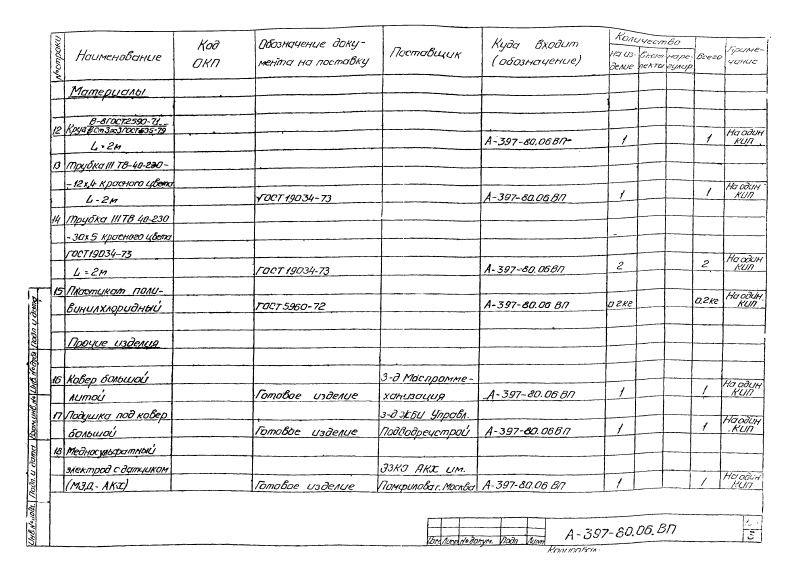 № строки Наименование Код ОКП Обозначение документа на поставку Поставщик Куда входит (обозначение) Количество на изделие в комплекты на регулир. Всего Примечание
Материалы
В-8ГОСТ2590-71
12 Круг ВСт3пс3ГОСТ535-79
L = 2м А-397-80.06ВП 1 1 На один КИП
13 Трубка III ТВ-40-230-
-12х,4 красного цвета
L - 2м ГОСТ 19034-73 А-397-80.06ВП 1 1 На один КИП
14 Трубка III ТВ 40-230
-30х5 красного цвета
ГОСТ19034-73
L = 2м ГОСТ 19034-73 А-397-80.06ВП 2 2 На один КИП
15 Пластикат поли-
винилхлоридный ГОСТ 5960-72 А-397-80.06 ВП 0.2кг 0.2кг На один КИП
Прочие изделия
16 Ковер большой З-д Моспромме-
литой Готовое изделие ханизация А-397-80.06 ВП 1 1 На один КИП
17 Подушка под ковер З-д ЖБИ Управл.
большой Готовое изделие Подводречстрой А-397-80.06 ВП 1 1 На один КИП
18 Медносульфатный
электрод с датчиком ЭЗКО АКХ им.
(МЭД-АКХ) Готовое изделие Памфилова г. Москва А-397-80.06 ВП 1 1 На один КИП
Инв.№ подл. Подп. и дата Взам.инв.№ Инв.№ дубл. Подп. и дата
Изм. Лист № докум. Подп.
А-397-80.06.ВП
3
Копировал: